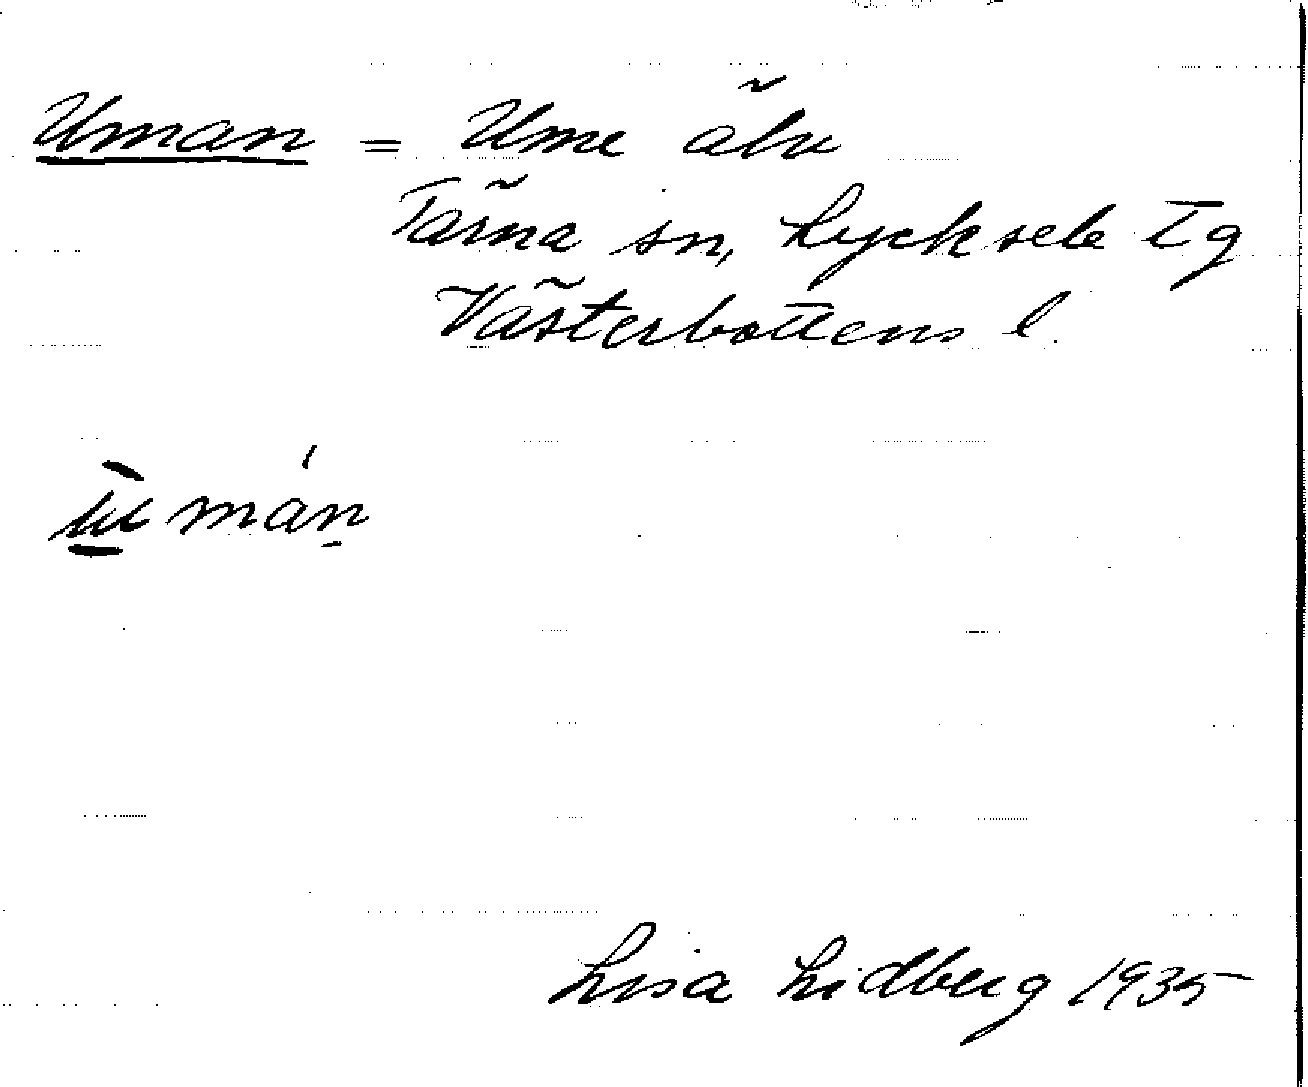 Uman = Ume älv
Tärna sn, Lycksele tg
Västerbottens l.
Lisa Lidberg 1935